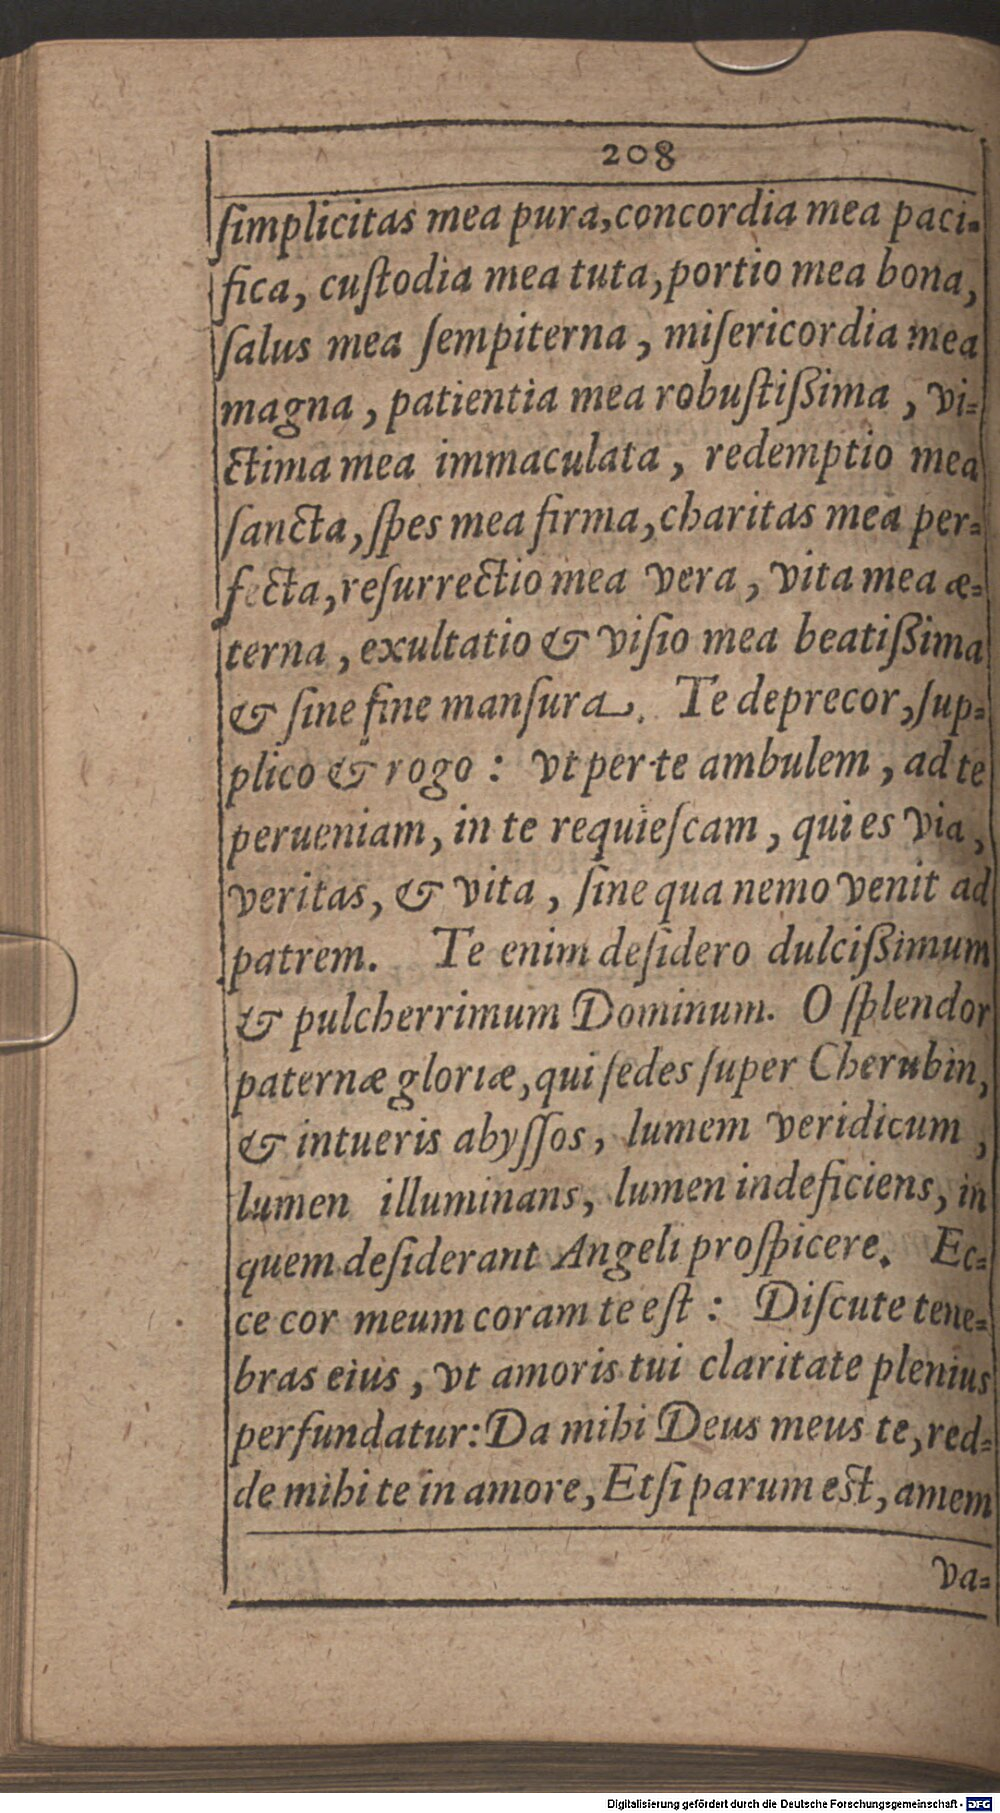 208
ſimplicitas mea pura, concordia mea paci-
fica, cuſtodia mea tuta, portio mea bona,
ſalus mea ſempiterna, miſericordia mea
magna, patientia mea robuſtißima, vi-
ctima mea immaculata, redemptio mea
ſancta, ſpes mea firma, charitas mea per-
fecta, reſurrectio mea vera, vita mea æ-
terna, exultatio & viſio mea beatißima
& ſine fine manſura. Te deprecor, ſup-
plico & rogo: vt per te ambulem, ad te
perueniam, in te requieſcam, qui es via,
veritas, & vita, ſine qua nemo venit ad
patrem. Te enim deſidero dulcißimum
& pulcherrimum Dominum. O ſplendor
paternæ gloriæ, qui ſedes ſuper Cherubin,
& intueris abyſſos, lumem veridicum,
lumen illuminans, lumen indeficiens, in
quem deſiderant Angeli proſpicere. Ec-
ce cor meum coram te eſt: Diſcute tene-
bras eius, vt amoris tui claritate plenius
perfundatur: Da mihi Deus meus te, red-
de mihi te in amore, Etſi parum eſt, amem
va-
Digitalisierung gefördert durch die Deutsche Forschungsgemeinschaft - DFG